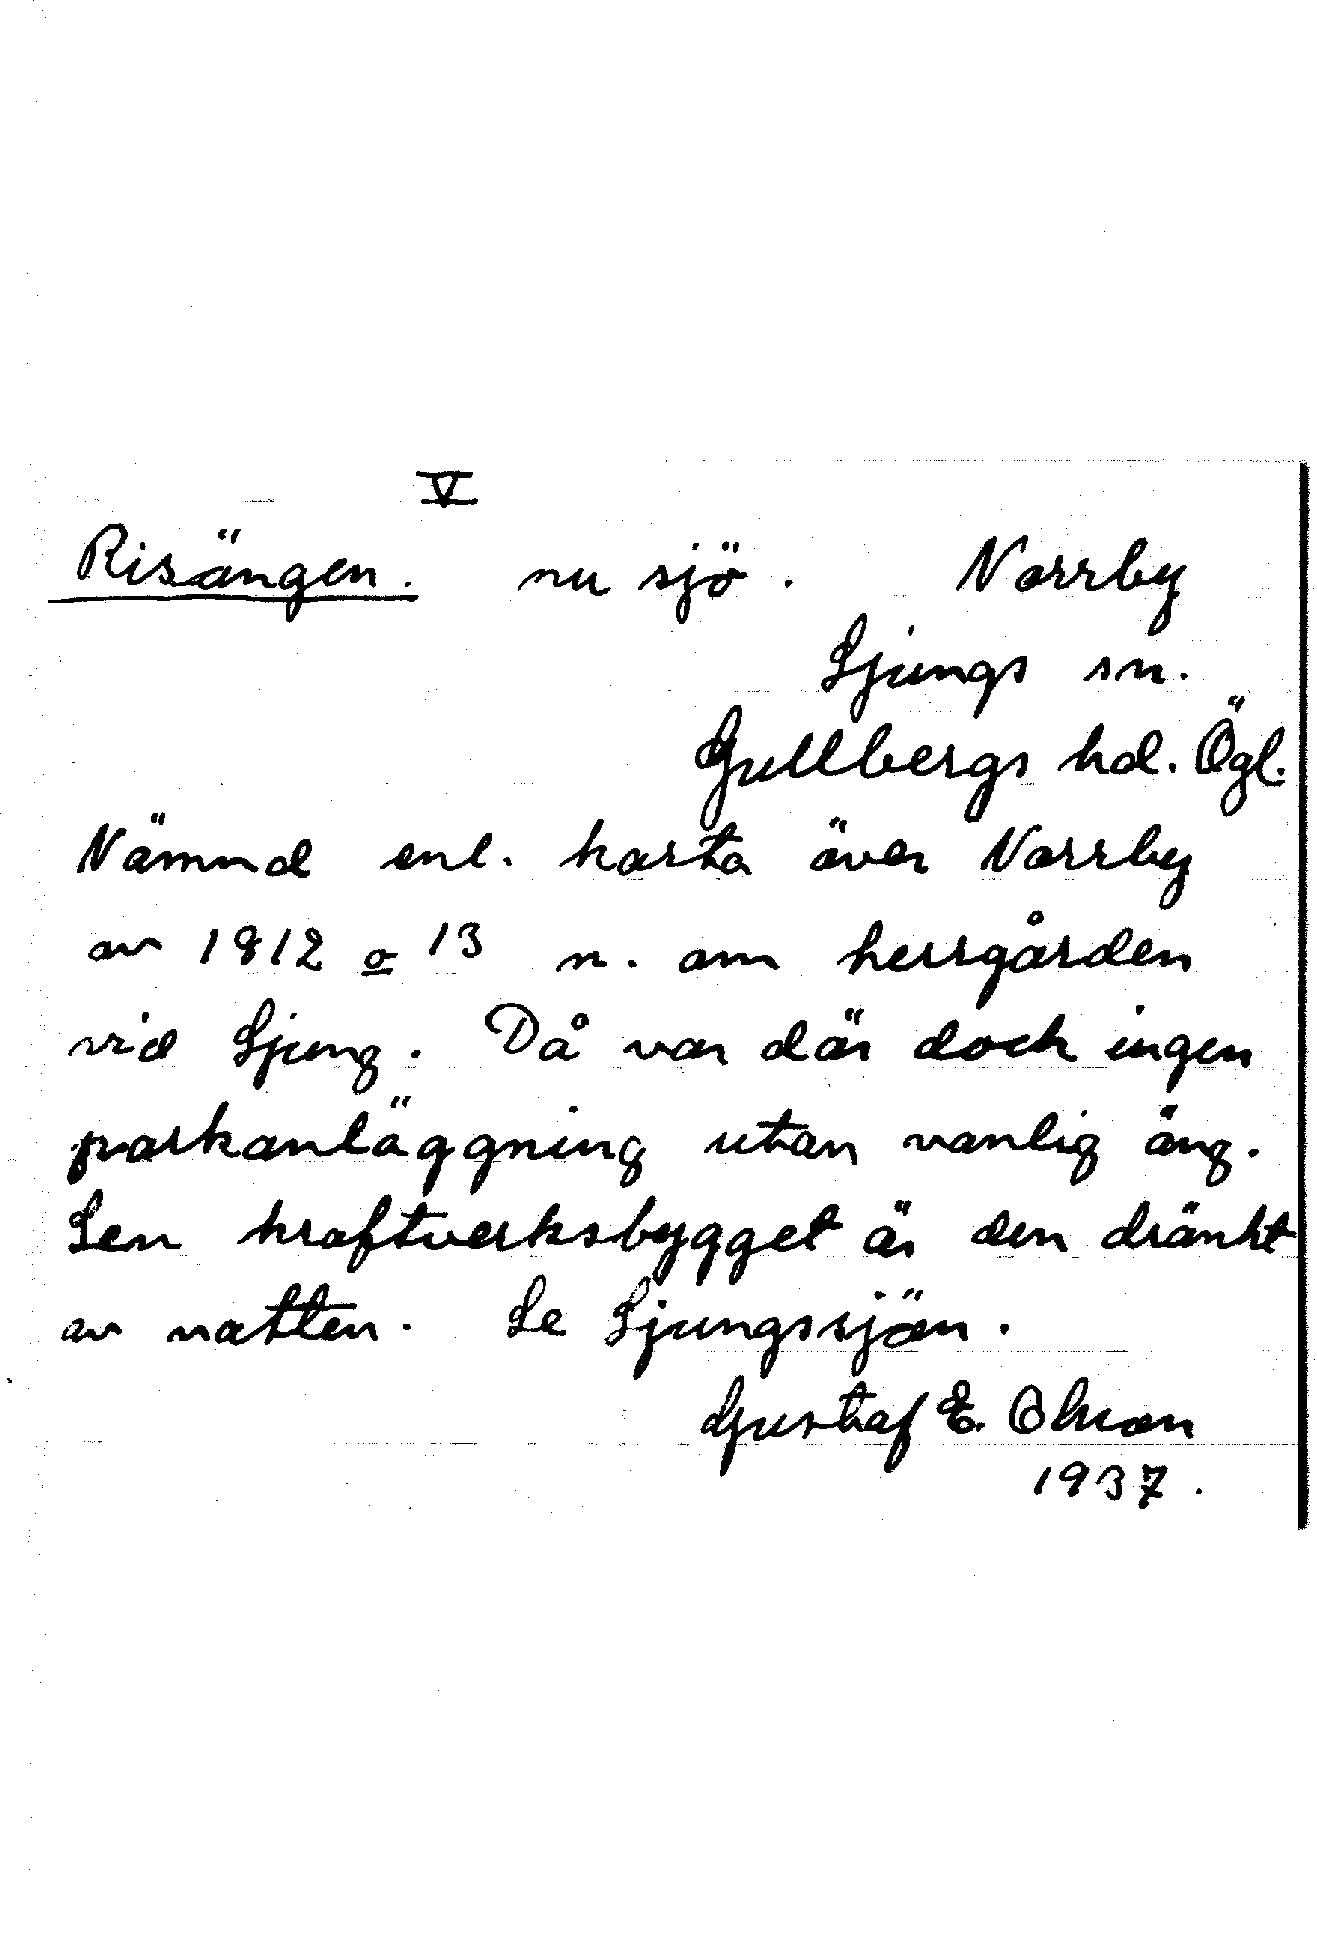 V
Risängen. nu sjö. Norrby
Ljungs sn.
Gullbergs hd. Ögl.
Nämnd enl. karta över Norrby
av 1812 o 13 n. om herrgården
vid Ljung. Då var där doch ingen
parkanläggning utan vanlig äng.
Sen kraftverksbygget är den dränkt
av vatten. Se Ljungssjön.
Gustaf E. Olsson
1937.